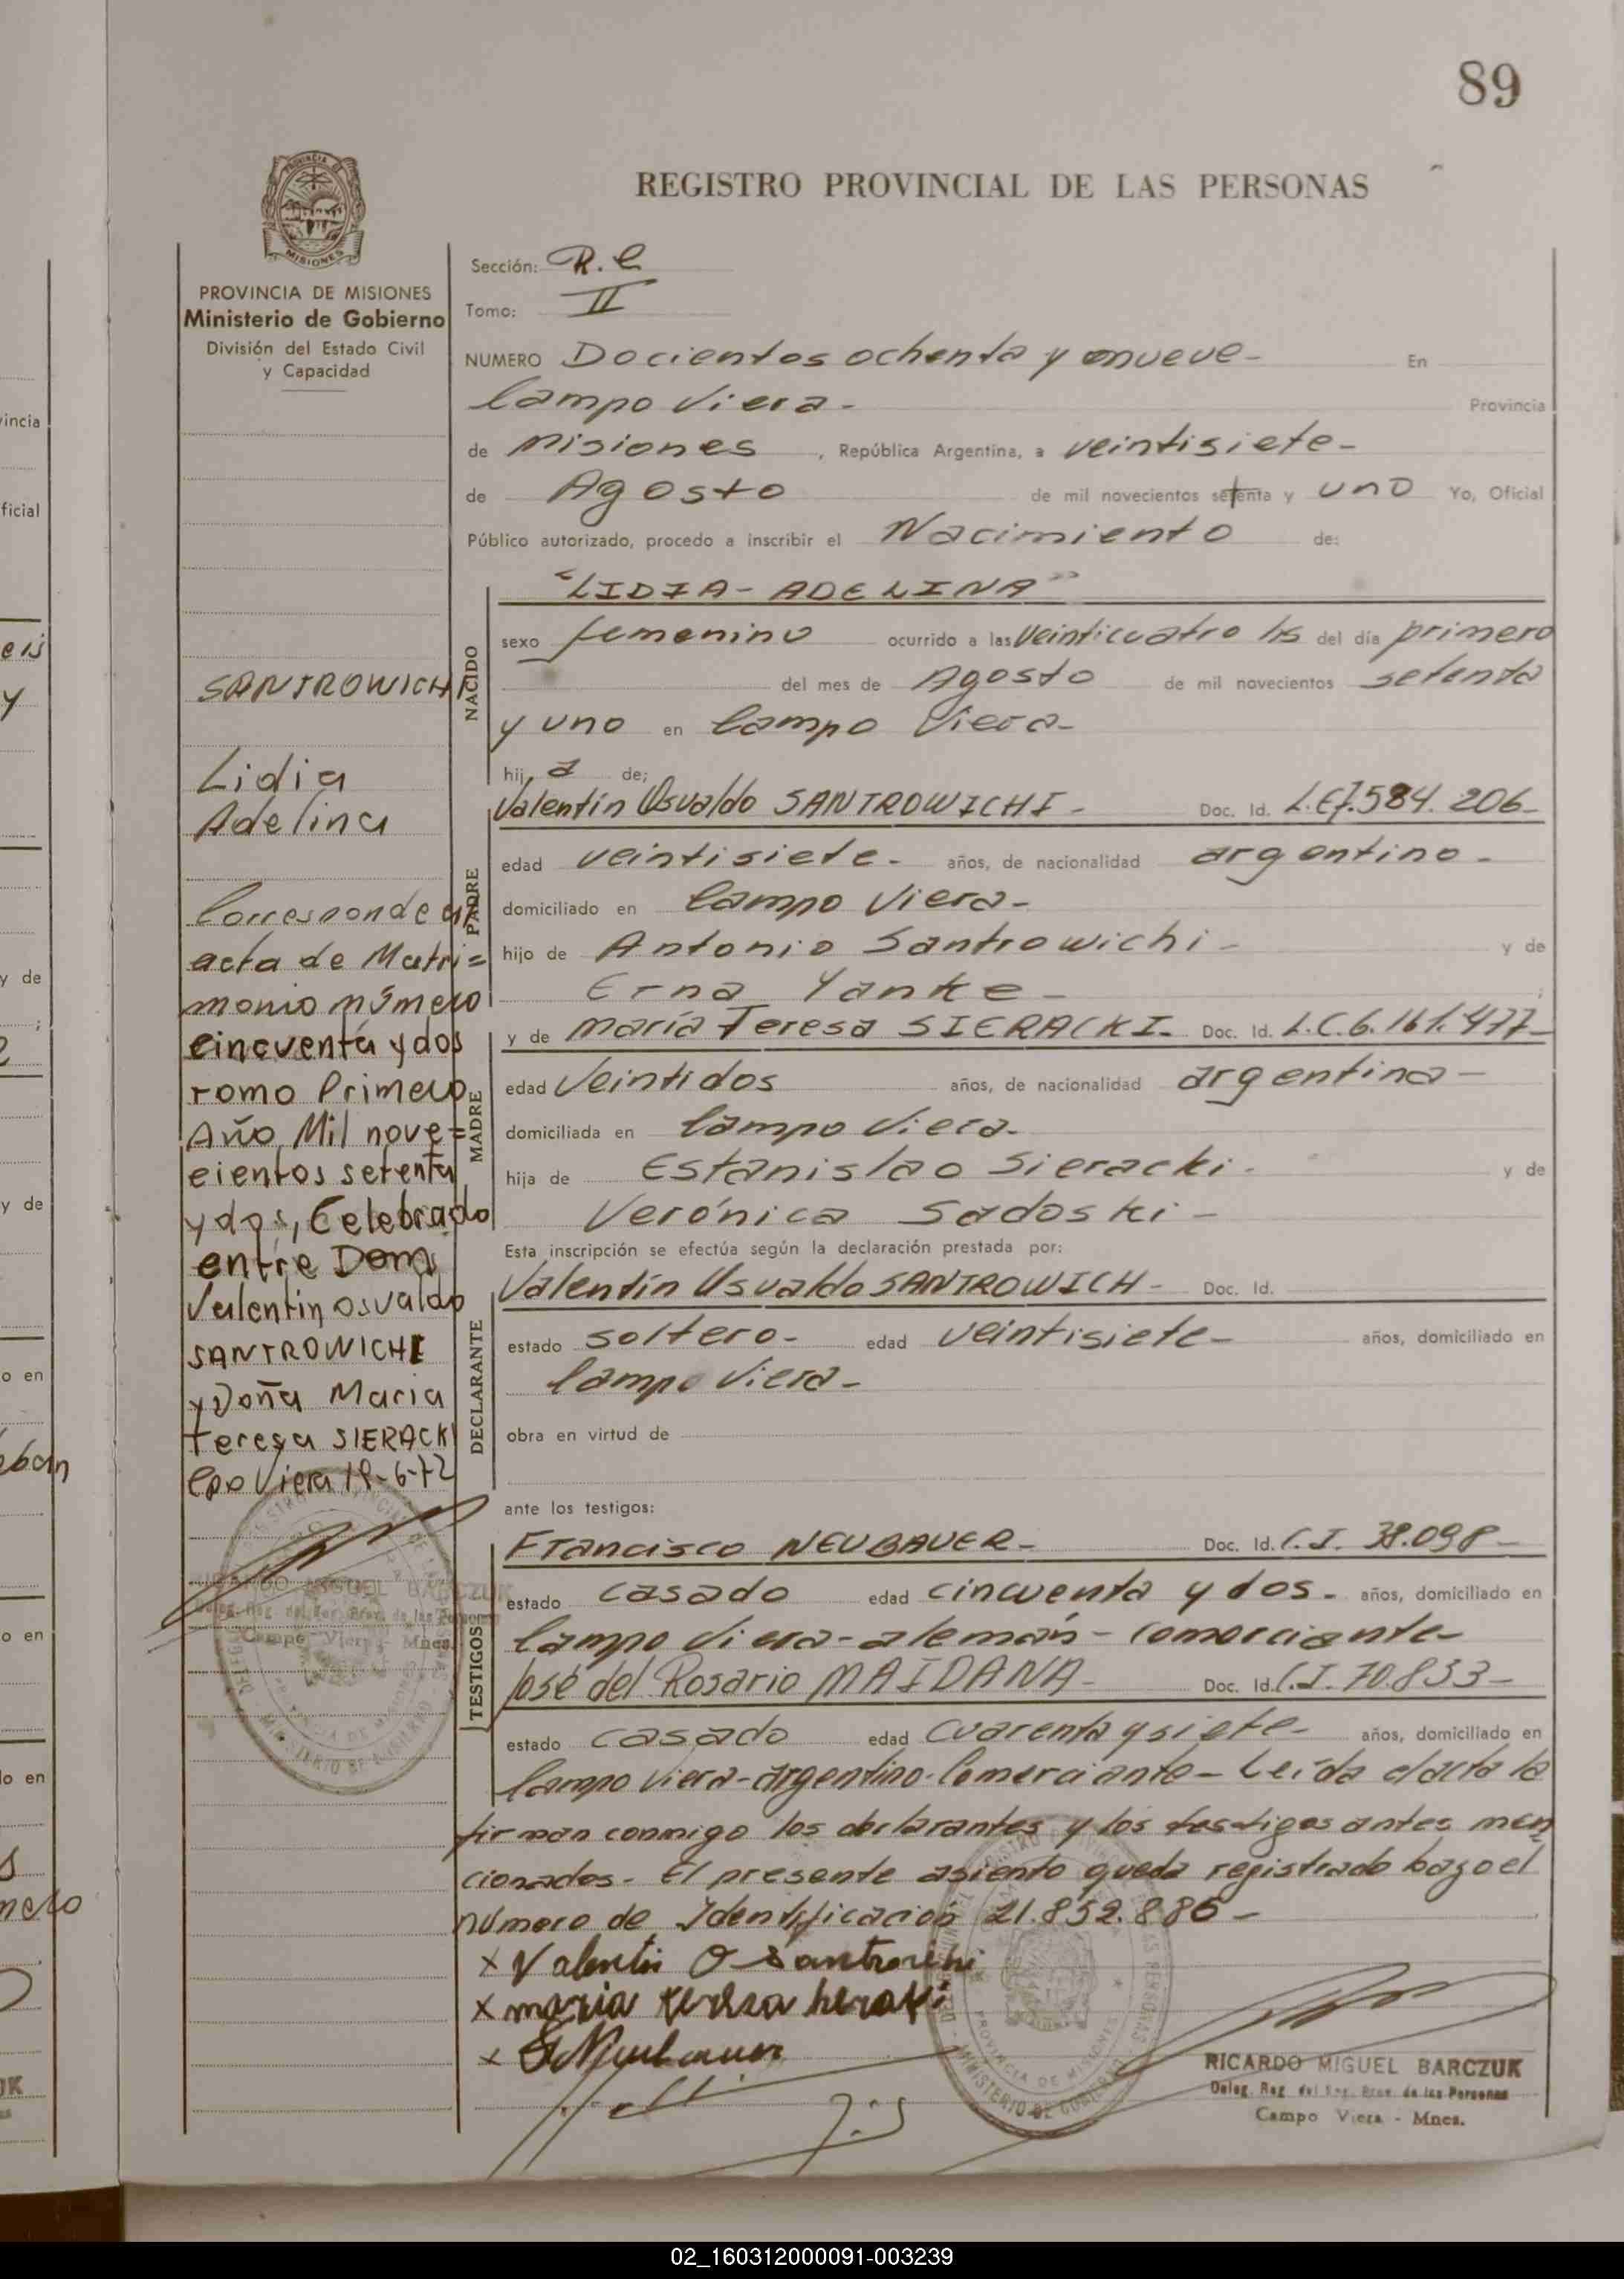 89
REGISTRO PROVINCIAL DE LAS PERSONAS
PROVINCIA DE MISIONES
Ministerio de Gobierno
División del Estado Civil
y Capacidad
SANTROWICHI
Lidia
Adelina
Corresponde al
acta de Matri=
monio número
cincuenta y dos
Tomo Primero
Año Mil nove=
cientos setenta
y dos, Celebrado
entre Dom
Valentin Osvaldo
SANTROWICHI
y Doña Maria
Teresa SIERACKI
Cpo Viera 19-6-72
RICARDO MIGUEL BARCZUK
Deleg. Reg. del Reg. Prov. de las Personas
Campo Viera - Mnes.
Sección: R.C
Tomo: II
NUMERO Docientos ochenta y nueve- En
Campo Viera- Provincia
de Misiones, República Argentina, a veintisiete-
de Agosto de mil novecientos setenta y uno Yo, Oficial
Público autorizado, procedo a inscribir el Nacimiento de:
NACIDO
"LIDIA-ADELINA"
sexo femenino ocurrido a las veinticuatro hs del día primero
del mes de Agosto de mil novecientos setenta
y uno en Campo Viera-
hija de;
PADRE
Valentín Osvaldo SANTROWICHI- Doc. Id. L.E 7.584.206-
edad veintisiete- años, de nacionalidad argentino-
domiciliado en Campo Viera-
hijo de Antonio Santrowichi- y de
Erna Yanke- ;
MADRE
y de María Teresa SIERACKI- Doc. Id. L.C.6.161.477-
edad Veintidos años, de nacionalidad argentina-
domiciliada en Campo Viera-
hija de Estanislao Sieracki- y de
Verónica Sadoski-
Esta inscripción se efectúa según la declaración prestada por:
DECLARANTE
Valentín Osvaldo SANTROWICH- Doc. Id.
estado soltero- edad veintisiete- años, domiciliado en
Campo Viera-
obra en virtud de
ante los testigos:
TESTIGOS
Francisco NEUBAUER- Doc. Id. C.I. 38.098-
estado casado edad cincuenta y dos- años, domiciliado en
Campo Viera-alemán-comerciante-
José del Rosario MAIDANA- Doc. Id. C.I. 70.833-
estado casado edad cuarenta y siete- años, domiciliado en
Campo Viera-argentino-Comerciante-Leída el acta la
firman conmigo los declarantes y los testigos antes men
cionados- El presente asiento queda registrado bajo el
número de Identificación 21.852.886-
x Valentin O Santrowichi
x maria teresa
x
RICARDO MIGUEL BARCZUK
Deleg. Reg. del Reg. Prov. de las Personas
Campo Viera - Mnes.
02_160312000091-003239